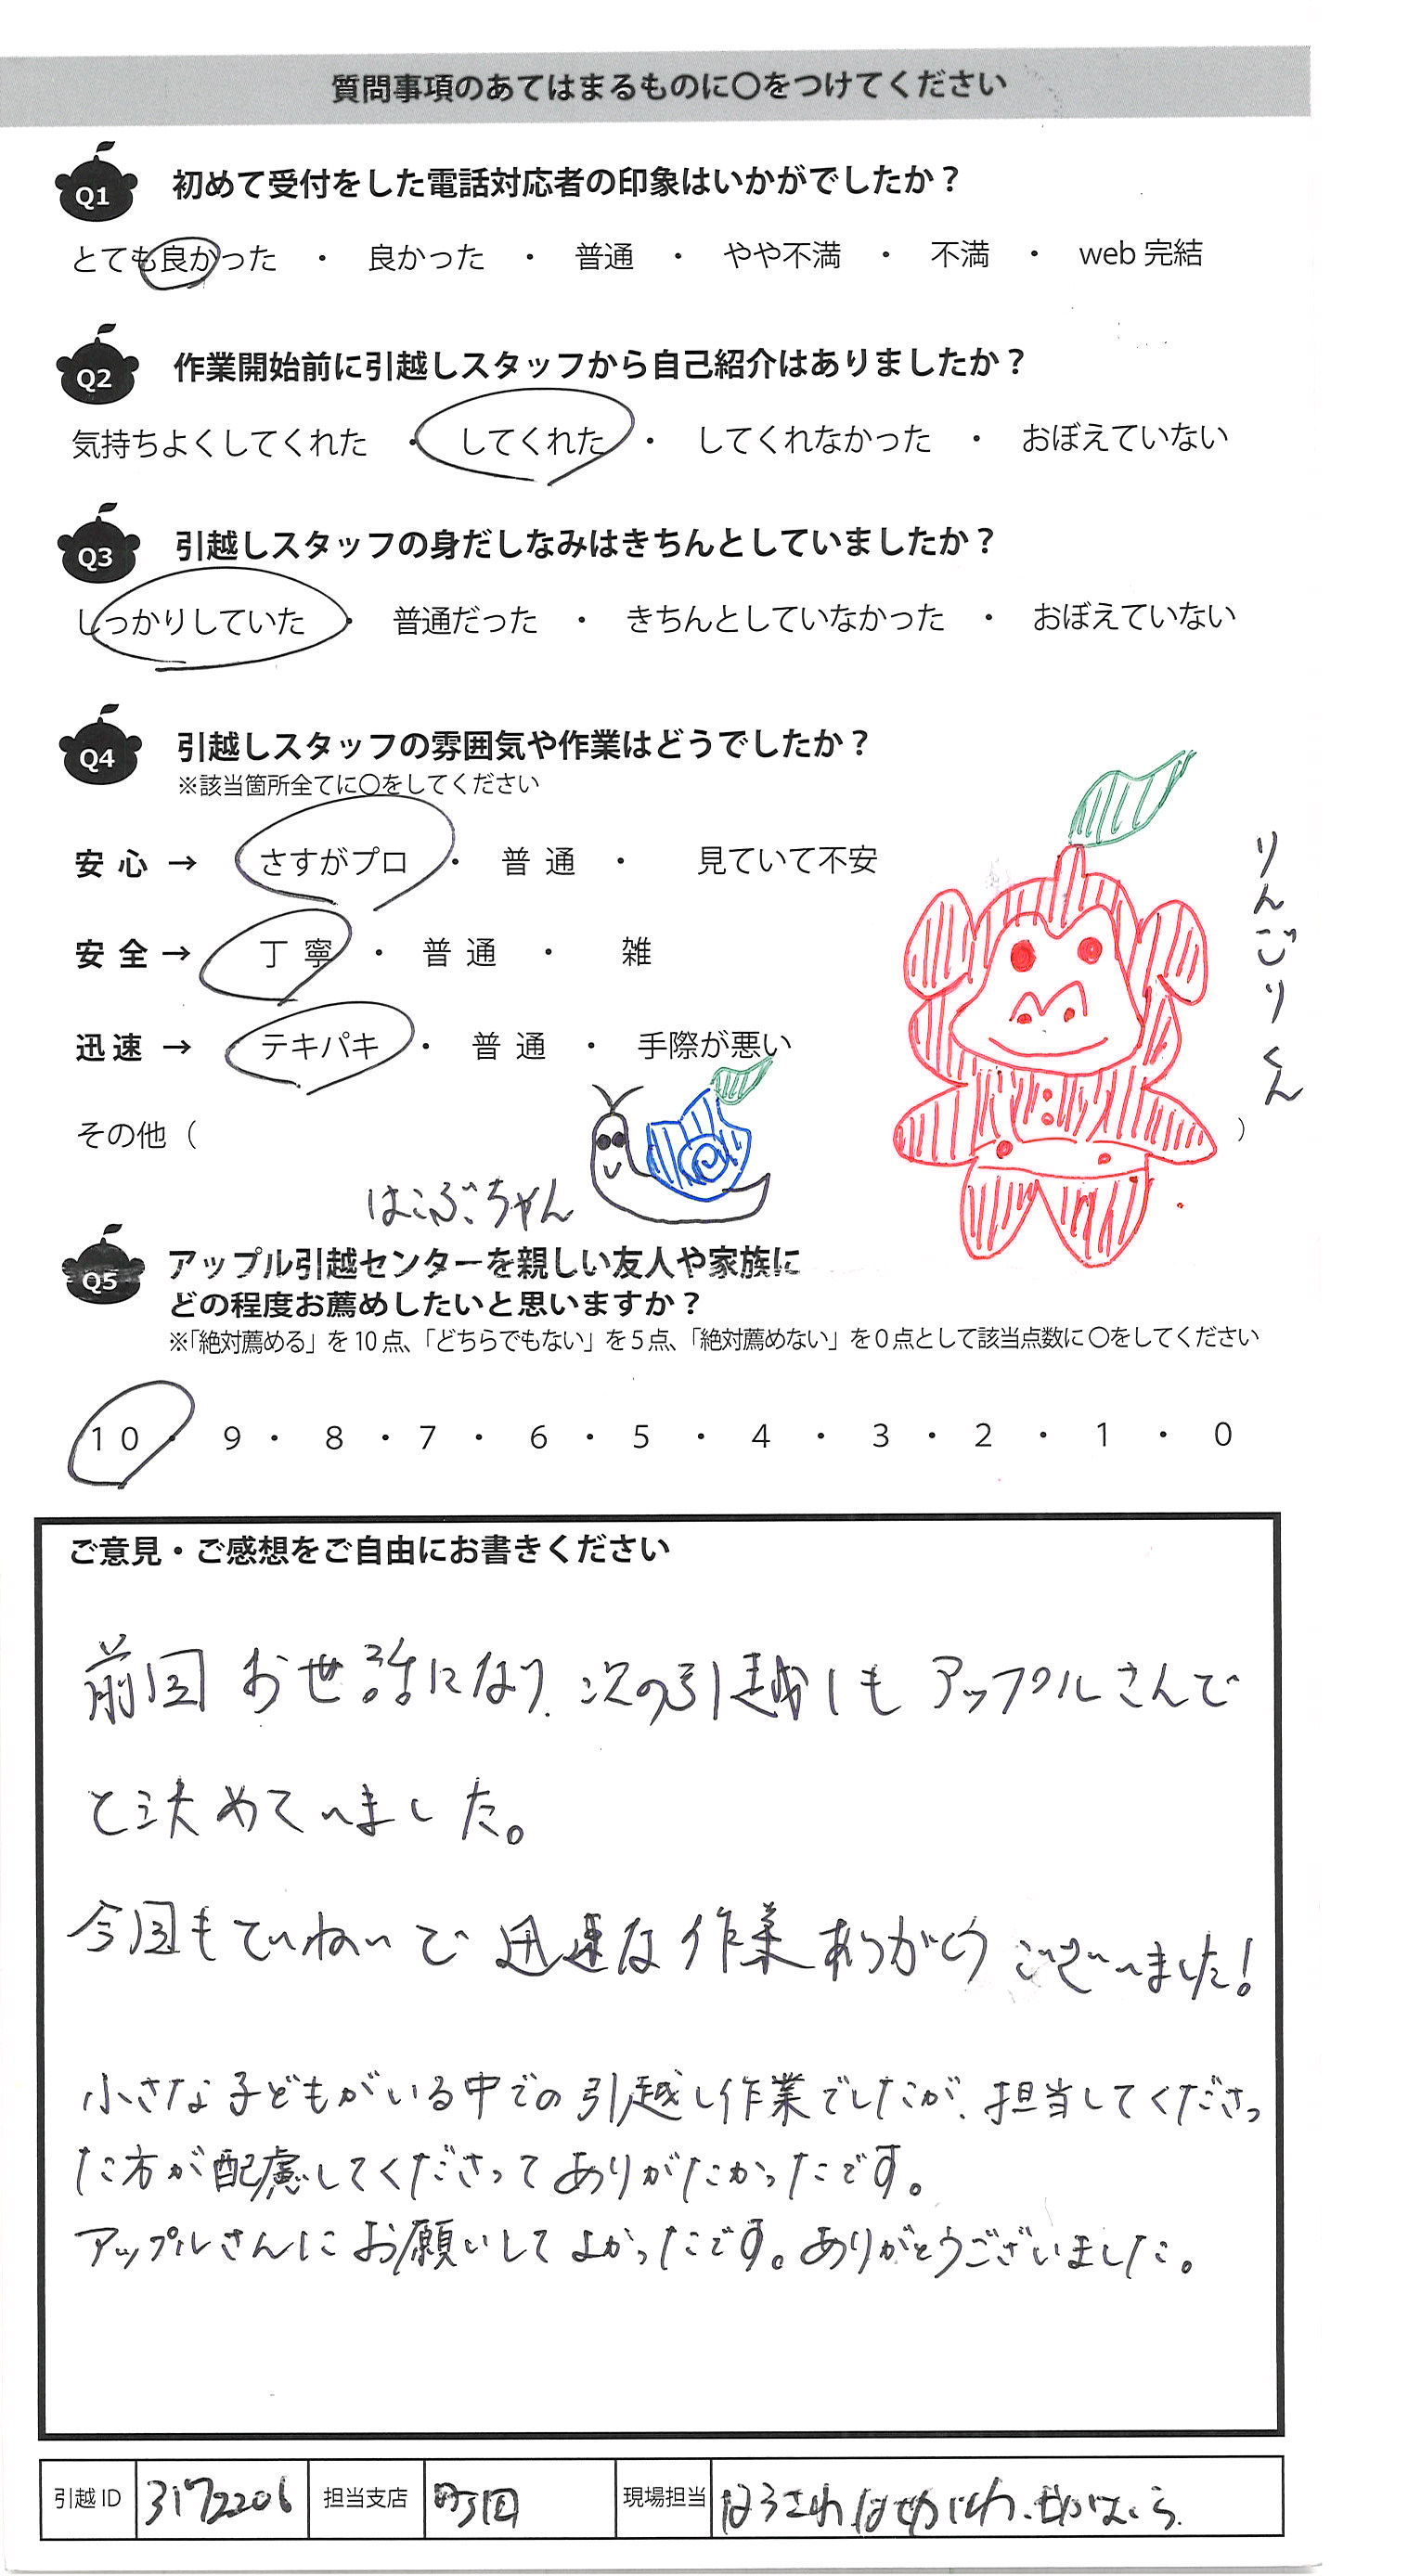 質問事項のあてはまるものに〇をつけてください
Q1 初めて受付をした電話対応者の印象はいかがでしたか？
とても良かった ・ 良かった ・ 普通 ・ やや不満 ・ 不満 ・ web 完結
Q2 作業開始前に引越しスタッフから自己紹介はありましたか？
気持ちよくしてくれた ・ してくれた ・ してくれなかった ・ おぼえていない
Q3 引越しスタッフの身だしなみはきちんとしていましたか？
しっかりしていた ・ 普通だった ・ きちんとしていなかった ・ おぼえていない
Q4 引越しスタッフの雰囲気や作業はどうでしたか？
※該当箇所全てに〇をしてください
安心 → さすがプロ ・ 普通 ・ 見ていて不安
安全 → 丁寧 ・ 普通 ・ 雑
迅速 → テキパキ ・ 普通 ・ 手際が悪い
りんごりくん
その他（ ）
はこぶちゃん
Q5 アップル引越センターを親しい友人や家族に
どの程度お薦めしたいと思いますか？
※「絶対薦める」を10点、「どちらでもない」を5点、「絶対薦めない」を0点として該当点数に〇をしてください
10 ・ 9 ・ 8 ・ 7 ・ 6 ・ 5 ・ 4 ・ 3 ・ 2 ・ 1 ・ 0
ご意見・ご感想をご自由にお書きください
前回お世話になり、次の引越しもアップルさんで
と決めていました。
今回もていねいで迅速な作業ありがとうございました!
小さな子どもがいる中での引越し作業でしたが、担当してくださっ
た方が配慮してくださってありがたかったです。
アップルさんにお願いしてよかったです。ありがとうございました。
引越ID 3172206 担当支店 町田 現場担当